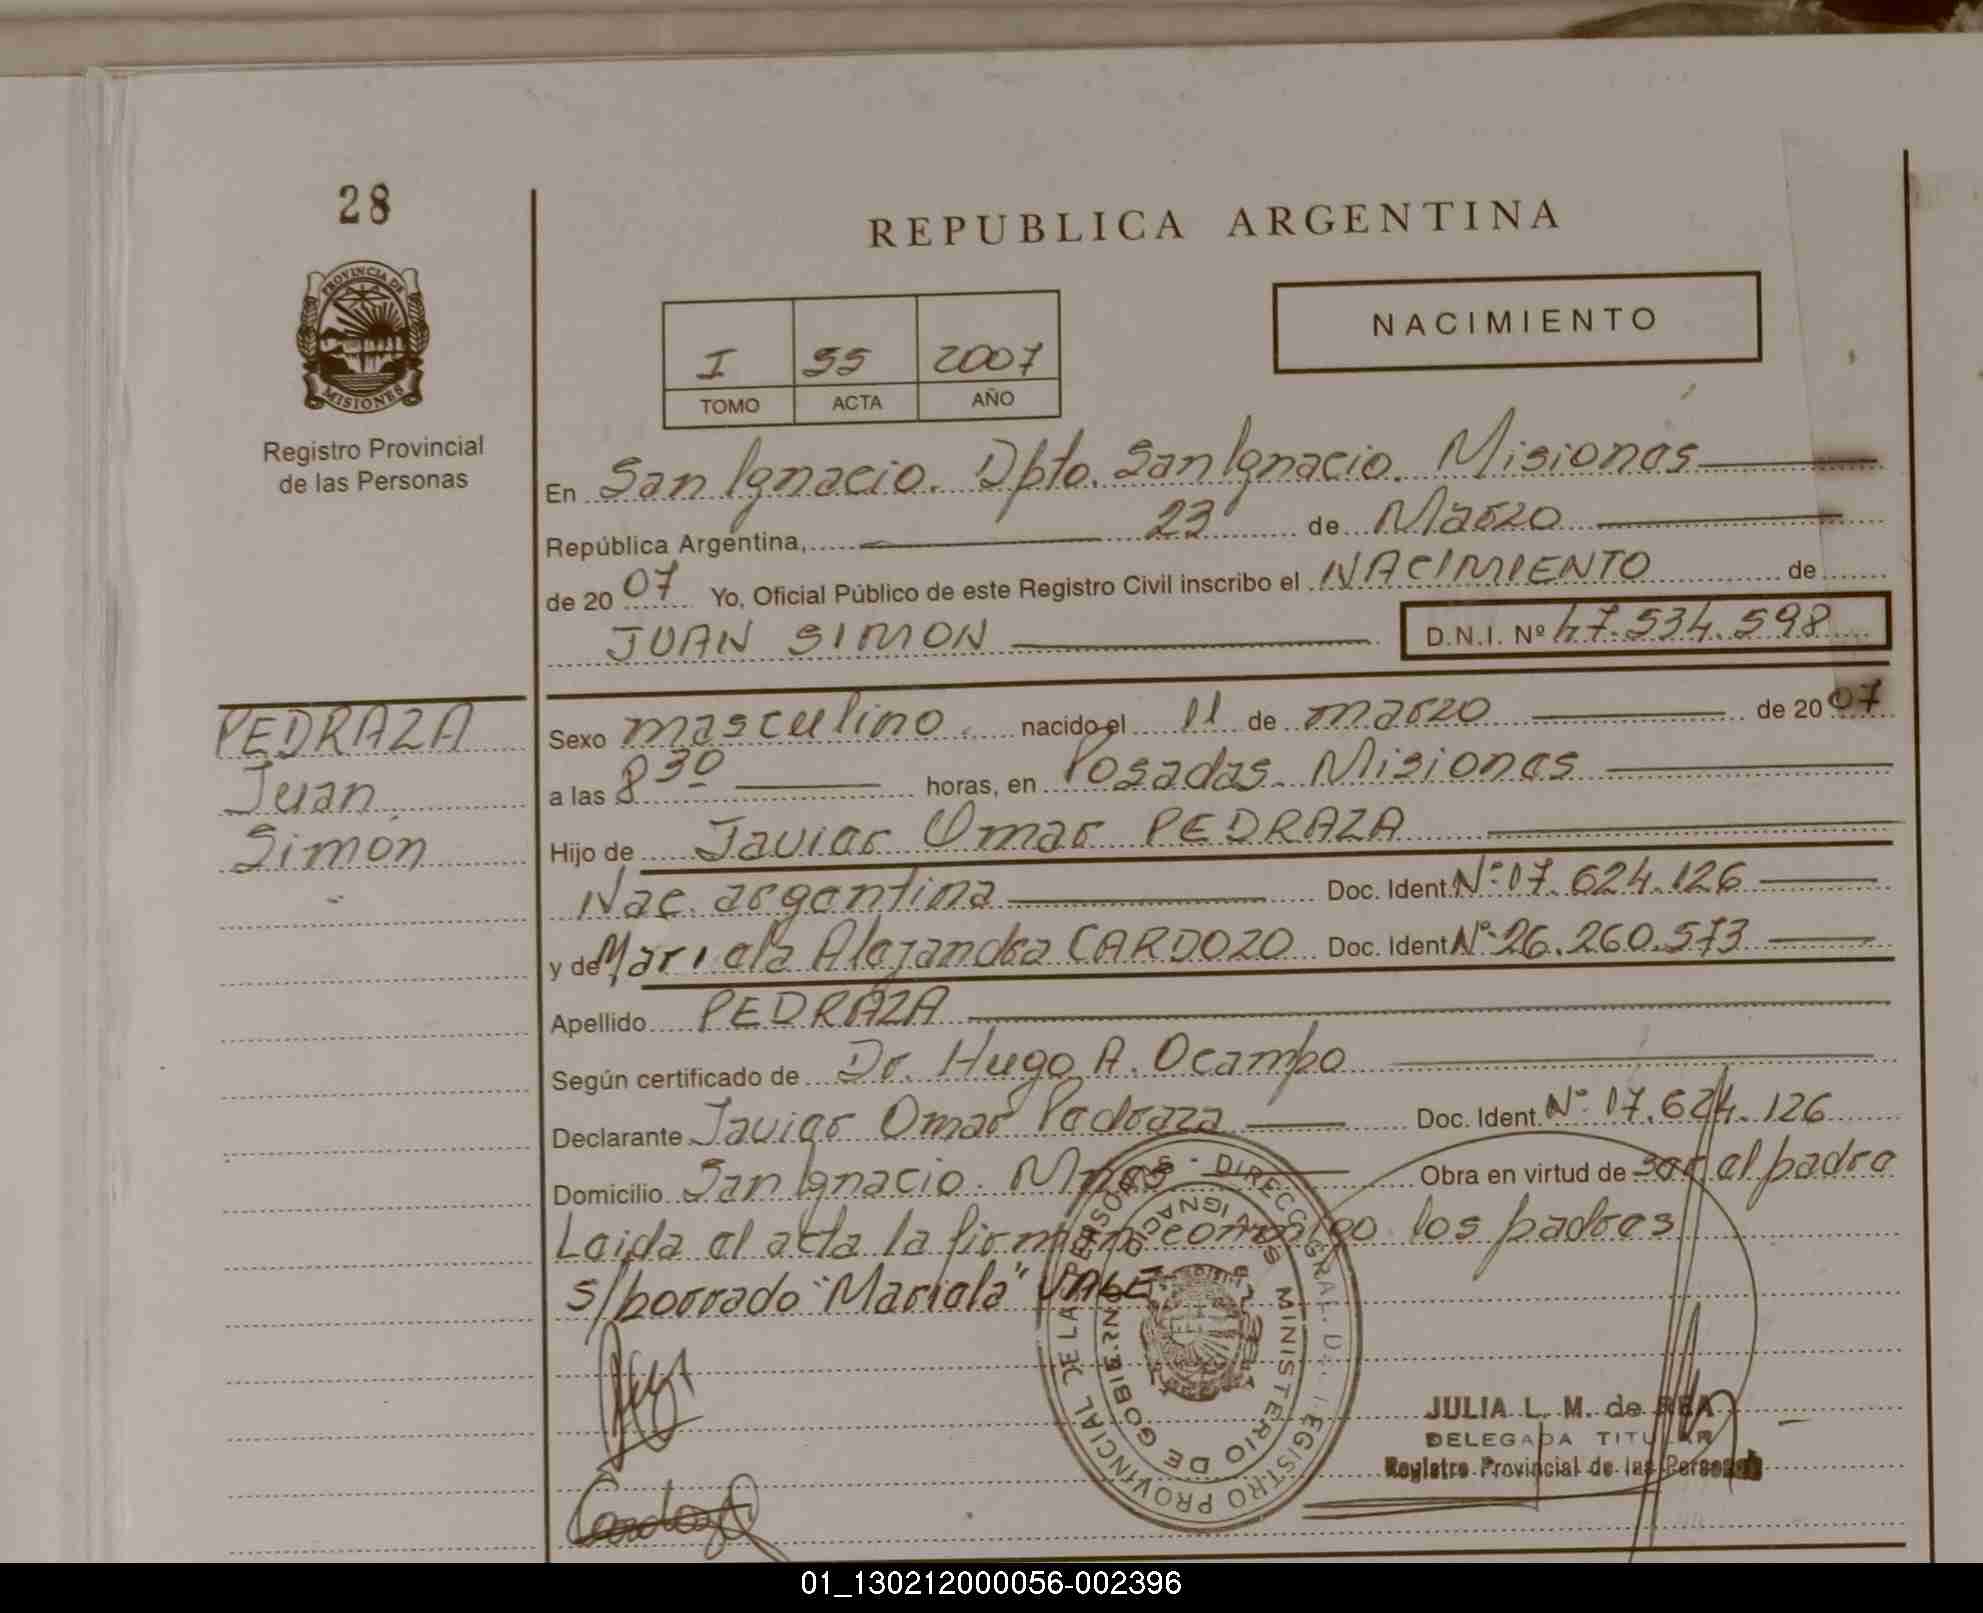 28
REPUBLICA ARGENTINA
NACIMIENTO
PROVINCIA DE
MISIONES
I 55 2007
TOMO ACTA AÑO
Registro Provincial
de las Personas
En San Ignacio. Dpto. San Ignacio. Misiones
República Argentina, 23 de Marzo
de 2007 Yo, Oficial Público de este Registro Civil inscribo el NACIMIENTO de
JUAN SIMON D.N.I. Nº 47.534.598
PEDRAZA
Juan
Simón
Sexo masculino. nacido el 11 de marzo de 2007
a las 8 30 horas, en Posadas. Misiones
Hijo de Javier Omar PEDRAZA
Nac. argentina Doc. Ident. Nº 17.624.126
y de Mariela Alejandra CARDOZO Doc. Ident. Nº 26.260.573
Apellido PEDRAZA
Según certificado de Dr. Hugo A. Ocampo
Declarante Javier Omar Pedraza Doc. Ident. Nº 17.624.126
Domicilio San Ignacio. Mnes Obra en virtud de ser el padre
Leida el acta la firman conmigo los padres
s/borrado "Mariela" VALE
MINISTERIO DE GOBIERNO
REGISTRO PROVINCIAL DE LAS PERSONAS - DIRECC. GRAL. DEL
SAN IGNACIO
JULIA L. M. de REA
DELEGADA TITULAR
Registro Provincial de las Personas
Cardozo
01_130212000056-002396